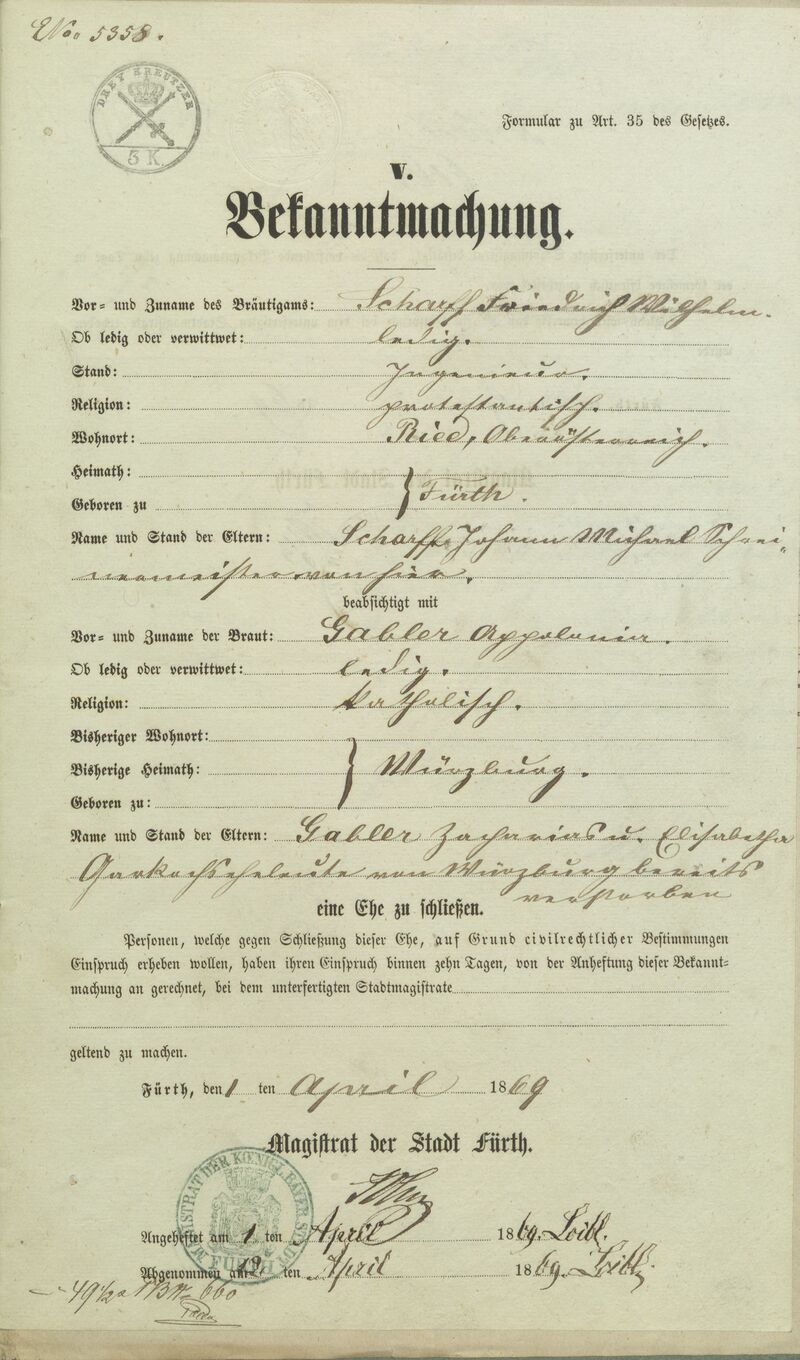 No. 5358.
DREY KREUTZER
3 K.
Formular zu Art. 35 des Gesetzes.
V.
Bekanntmachung.
Vor- und Zuname des Bräutigams: Scharff Friedrich Wilhelm.
Ob ledig oder verwittwet: ledig.
Stand: Ingenieur.
Religion: protestantisch.
Wohnort: Ried, Oberösterreich.
Heimath:
Geboren zu } Fürth.
Name und Stand der Eltern: Scharff Johann Michael Schrei-
nermeister von hier,
beabsichtigt mit
Vor- und Zuname der Braut: Gabler Appolonia.
Ob ledig oder verwittwet: ledig.
Religion: katholisch.
Bisheriger Wohnort:
Bisherige Heimath: } Würzburg.
Geboren zu:
Name und Stand der Eltern: Gabler Zacharias u. Elisabetha
Garkochseheleute von Würzburg bereits
verstorben
eine Ehe zu schließen.
Personen, welche gegen Schließung dieser Ehe, auf Grund civilrechtlicher Bestimmungen
Einspruch erheben wollen, haben ihren Einspruch binnen zehn Tagen, von der Anheftung dieser Bekannt=
machung an gerechnet, bei dem unterfertigten Stadtmagistrate
geltend zu machen.
Fürth, den 1 ten April 1869
Magistrat der Stadt Fürth.
MAGISTRAT DER KÖNIGL. BAYER. STADT FÜRTH
Angeheftet am 1 ten April 1869. Loibl.
Abgenommen am 12 ten April 1869. Loibl.